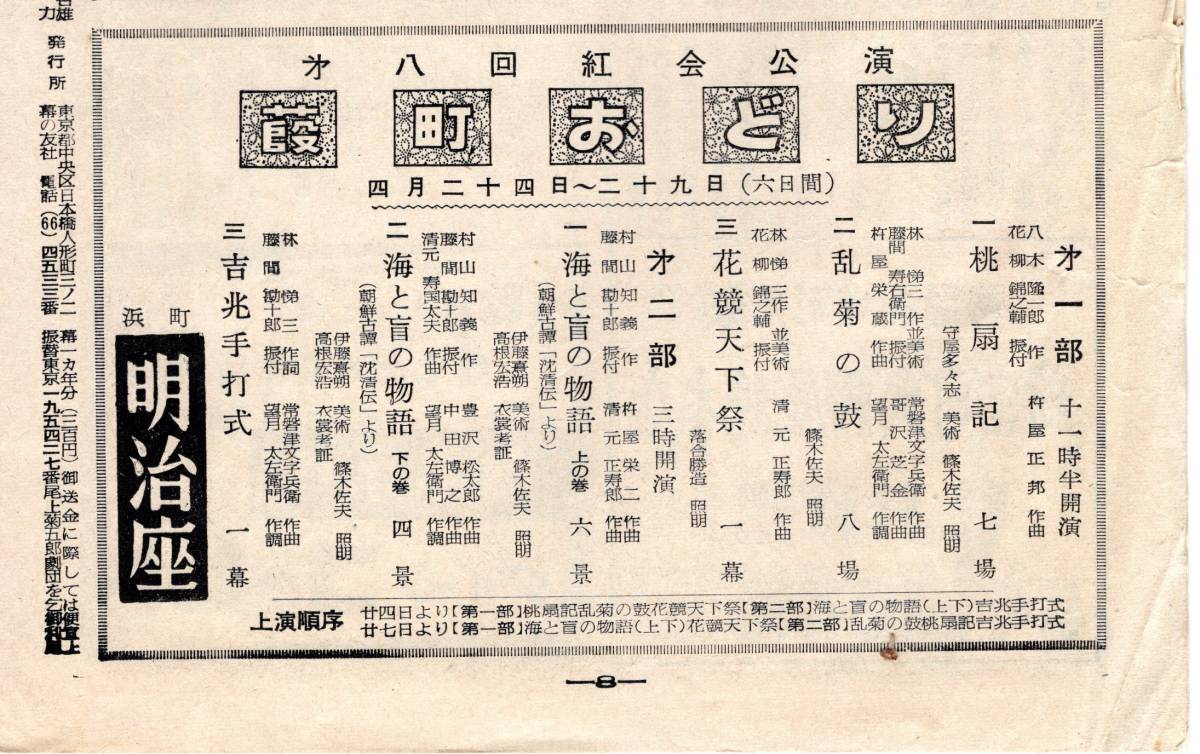 才八回紅会公演
葭町おどり
四月二十四日〜二十九日(六日間)
才一部 十一時半開演
八木隆一郎 作 杵屋正邦 作曲
花柳錦之輔 振付
一 桃扇記 七場
守屋多々志 美術 篠木佐夫 照明
林悌三 作並美術 常磐津文字兵衛 作曲
藤間寿右衛門 振付 哥沢芝金 作曲
杵屋栄蔵 作曲 望月太左衛門 作調
二 乱菊の鼓 八場
篠木佐夫 照明
林悌三 作並美術 清元正寿郎 作曲
花柳錦之輔 振付
三 花競天下祭 一幕
落合勝造 照明
才二部 三時開演
村山知義 作 杵屋栄二 作曲
藤間勘十郎 振付 清元正寿郎 作曲
一 海と盲の物語 上の巻 六景
(朝鮮古譚「沈清伝」より)
伊藤熹朔 美術 篠木佐夫 照明
高根宏浩 衣裳考証
村山知義 作 豊沢松太郎 作曲
藤間勘十郎 振付 中田博之 作曲
清元寿国太夫 作曲 望月太左衛門 作調
二 海と盲の物語 下の巻 四景
(朝鮮古譚「沈清伝」より)
伊藤熹朔 美術 篠木佐夫 照明
高根宏浩 衣裳考証
林悌三 作詞 常磐津文字兵衛 作曲
藤間勘十郎 振付 望月太左衛門 作調
三 吉兆手打式 一幕
上演順序
廿四日より【第一部】桃扇記乱菊の鼓花競天下祭【第二部】海と盲の物語(上下)吉兆手打式
廿七日より【第一部】海と盲の物語(上下)花競天下祭【第二部】乱菊の鼓桃扇記吉兆手打式
浜町
明治座
発行所 東京都中央区日本橋人形町三ノ二
幕の友社 電話(66)四五三三番 振替東京一九五四二七番
幕一カ年分(三百円)御送金に際しては
尾上菊五郎劇団を
—8—